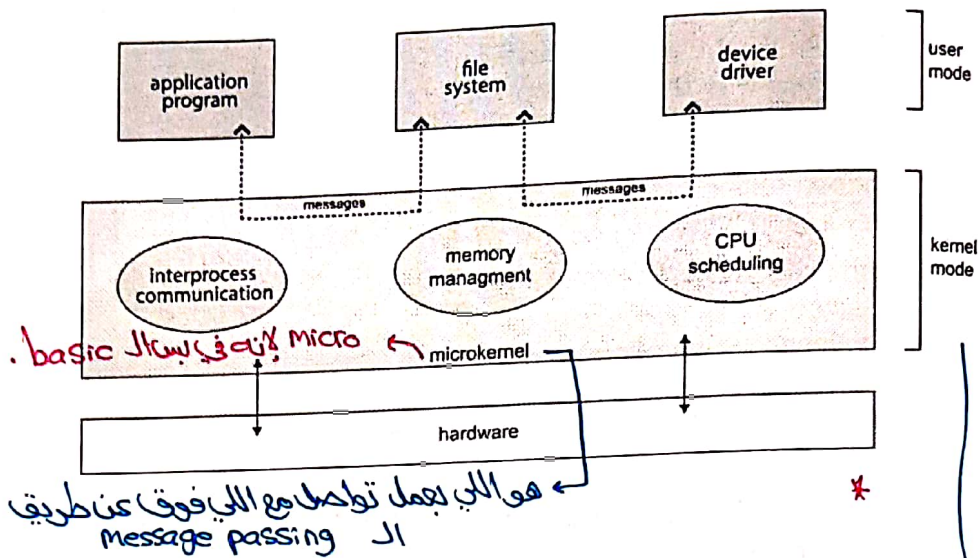 application
program
file
system
device
driver
user
mode
messages
messages
interprocess
communication
memory
managment
CPU
scheduling
kernel
mode
micro لإنه في بس ال basic .
microkernel
hardware
هو اللي بعمل تواصل مع اللي فوق عن طريق
ال message passing
*